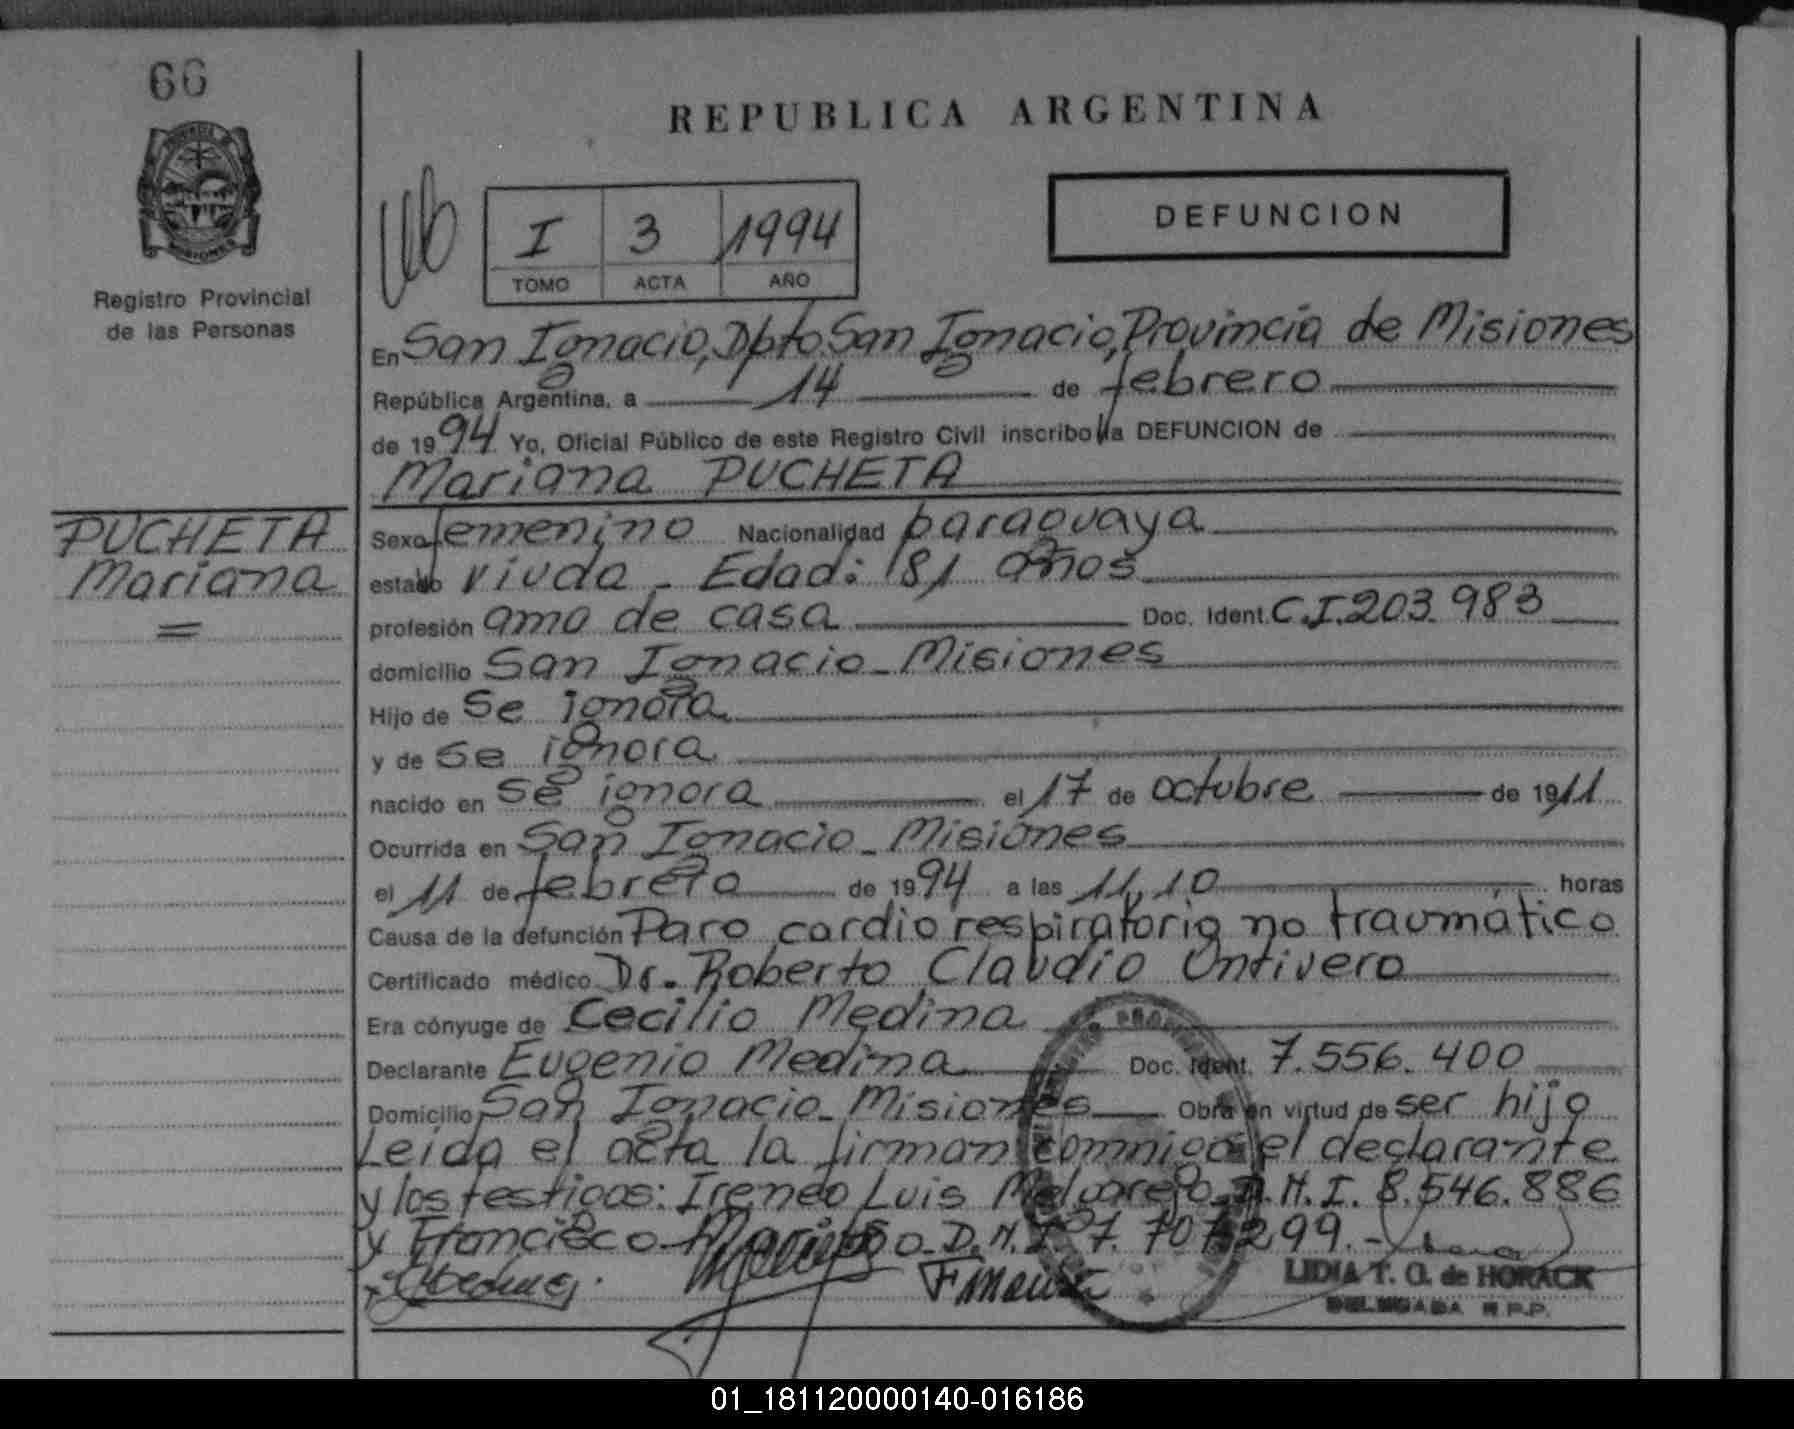 66
REPUBLICA ARGENTINA
DEFUNCION
I 3 1994
TOMO ACTA AÑO
Registro Provincial
de las Personas
En San Ignacio, Dpto. San Ignacio, Provincia de Misiones
República Argentina, a 14 de febrero
de 1994 Yo, Oficial Público de este Registro Civil inscribo la DEFUNCION de
Mariana PUCHETA
PUCHETA
Mariana
Sexo femenino Nacionalidad paraguaya
estado viuda - Edad: 81 años
profesión ama de casa Doc. Ident. C.I. 203.983
domicilio San Ignacio - Misiones
Hijo de se ignora
y de se ignora
nacido en se ignora el 17 de octubre de 1911
Ocurrida en San Ignacio - Misiones
el 11 de febrero de 1994 a las 11,10 horas
Causa de la defunción Paro cardio respiratorio no traumático
Certificado médico Dr. Roberto Claudio Ontivero
Era cónyuge de Cecilio Medina
Declarante Eugenio Medina Doc. Ident. 7.556.400
Domicilio San Ignacio - Misiones Obra en virtud de ser hijo
Leida el acta la firman conmigo el declarante
y los testigos: Ireneo Luis D.N.I. 8.546.886
y Francisco D.N.I. 299.-
LIDIA T. O. de HORACK
DELEGADA R.P.P.
01_181120000140-016186